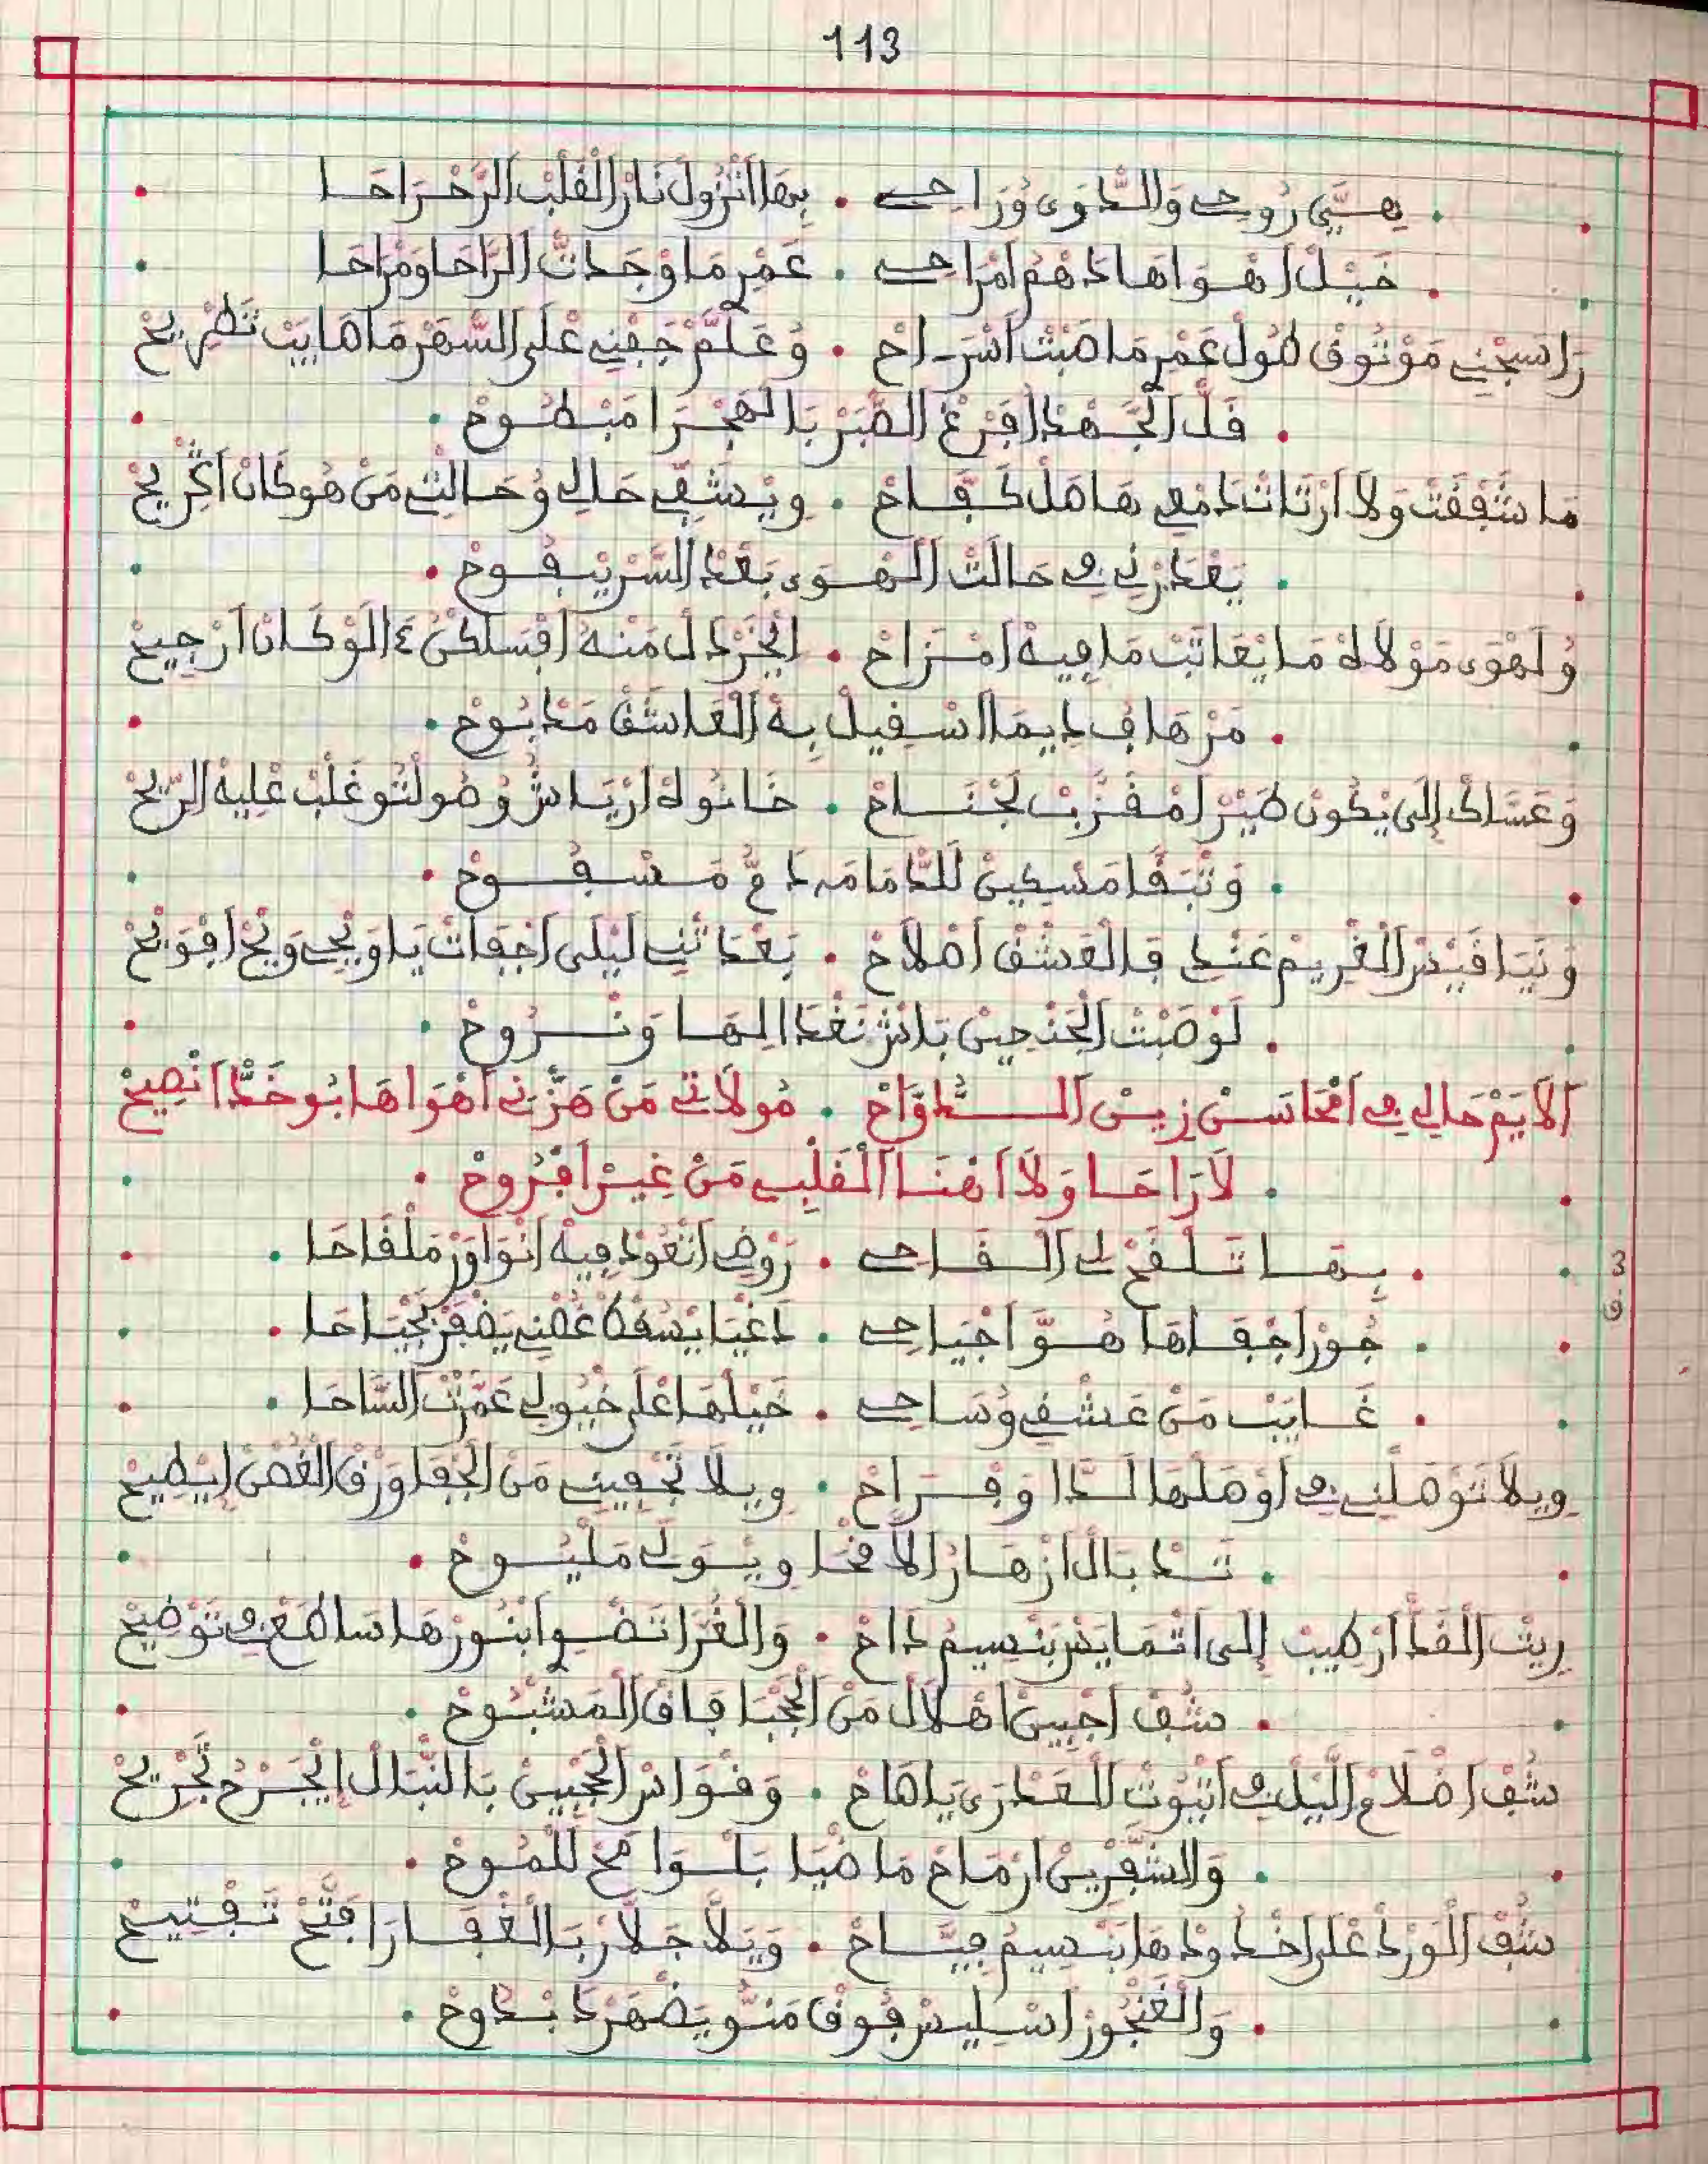 113
هِيَّ رُوحِي وَالدَّوَى وُرَاحِي . بِهَا اتْزُولْ نَارْ الْقَلْبْ الرَّحْرَاحَا
خَيْلْ اهْوَاهَا دَهْمْ امْرَاحِي . عَمْرِ مَا وْجَدْتْ الرَّاحَا وَمْرَاحَا
رَاسِجْنِي مَوْتُوقْ طُولْ عَمْرِ مَا صَبْتْ اسْرَاحْ . وُعَلَّمْ جَفْنِي عْلَى السّْهَرْ مَا صَايَبْ تَطْرِيحْ
قَلّْ الْجَهْدْ افْرَغْ الصّْبَرْ بَالْهَجْرَا مَبْطُوحْ
مَا شَفْقَتْ وَلَا ارْتَاتْ دَمْعِي هَامَلْ دَفَّاحْ . وِيْشَفِّي حَالِي وُحَالْتِي مَنْ هُو كَانْ اكْرِيحْ
يَعْدَرْنِي فِي حَالَتْ الْهْوَى بَعْدْ السَّرّْ يْبُوحْ
وُلَهْوَى مَوْلَاهْ مَا يْعَاتَبْ مَا فِيهْ امْزَاحْ . الْخَرْدَلْ مَنْهْ اقْسَا كُنْ ءَالَوْ كَانْ ارْجِيحْ
مَرْهَافْ دِيمَا اسْقِيلْ بِهْ الْعَاشَقْ مَدْبُوحْ
وَعَسَّاكْ إِلَى يْكُونْ طَيْرْ امْقَزَّبْ لَجْنَاحْ . خَانُوهْ ارْيَاشُ وُصُولْتُو غَلْبْ عْلِيهْ الرِّيحْ
وَتْبَقَّا مَسْكِينْ لَلدّْمَامَه دَمْعُ مَسْفُوحْ
وَنْيَا قَيْسْ الْغْرِيمْ عَنْدِ فَالْعَشْقْ اصْلَاحْ . بَعْدَاتْنِي لَيْلَى اجْفَاتْ يَا وَيْحِي وَيْحْ افْوَيْحْ
لَوْ صَبْتْ الْجَنْحِينْ بَاشْ نَغْدَا الِهَا وَنْرُوحْ
الَايَمْ حَالِي فِي امْحَاسَنْ زِينْ الدَّوَّاحْ . مُولَاتِي مَنْ هَزّْنِي اهْوَاهَا بُوخَدّْ انْصِيحْ
لَا رَاحَا وَلَا اهْنَا الْقَلْبِي مَنْ غِيرْ افْرُوحْ
3
ق
بِهَا تَلْقَحْ لِي الْقَاحِي . رَوْضِ اتْعُودْ فِيهْ انْوَاوَرْ مَلْقَاحَا
جُورْ اجْفَاهَا هُوَّ اجْيَاحِي . دَاغْيَا يْسَقَّطْ غُصْنِي يَضْفَرْ بَجْيَاحَا
غَايَبْ مَنْ عَشْقِي وُسَاحِي . خَيْلْهَا عْلَى خْيُولِي عَمْرَتْ السَّاحَا
وِيلَا تَوْصَلْنِي فِي اوْصَلْهَا لَدَّا وَفْرَاحْ . وِيلَا تَجْفِينِي مَنْ الْجْفَا وَرْقْ الْغْصَنْ ايْطِيحْ
تَدْبَالْ ازْهَارْ الَامْحَا وِيْوَلِّي مَلْيُوحْ
رِيتْ الْقَدّْ ارْطِيبْ إِلَى اتْمَايَسْ بَنْسِيمْ دَاحْ . وَالْغُرَّا تَضْوِ ابْنُورْهَا سَاطَعْ فِي تَوْضِيحْ
شُفْ اجْبِينْ اهْلَالْ مَنْ الْحْجَبَا فَاقْ الْمَشْبُوحْ
شُفْ اضْلَامْ اللَّيْلْ فِي اتْيُوتْ الْعَدْرَى يَا صَاحْ . وَقْوَاسْ الْحَجْبِينْ بَالنّْبَالْ ايْجَرْحْ تَجْرِيحْ
وَالشَّفْرِينْ ارْمَاحْ مَاضْيَا بَالْسْوَامَحْ لَلْمُوحْ
شُفْ الْوَرْدْ عْلَى اخْدُودْهَا بَنْسِيمْ فِيَّاحْ . وَيَلَّا جَلَّارْ بَالْغْفَارَا فَتَّحْ تَفْتِيحْ
وَالْغَنْجُورْ اسْلِيسْ فُوقْ مَنُّو يَضْهَرْ دَبْدُوحْ